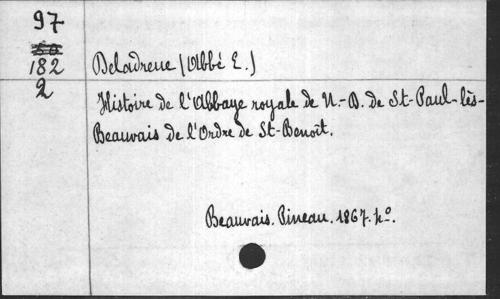 97
182 Deladreue (Abbé E.)
2 Histoire de l'Abbaye royale de N.-D. de St-Paul-lès-
Beauvais de l'Ordre de St-Benoît.
Beauvais. Pineau. 1867. 4o.